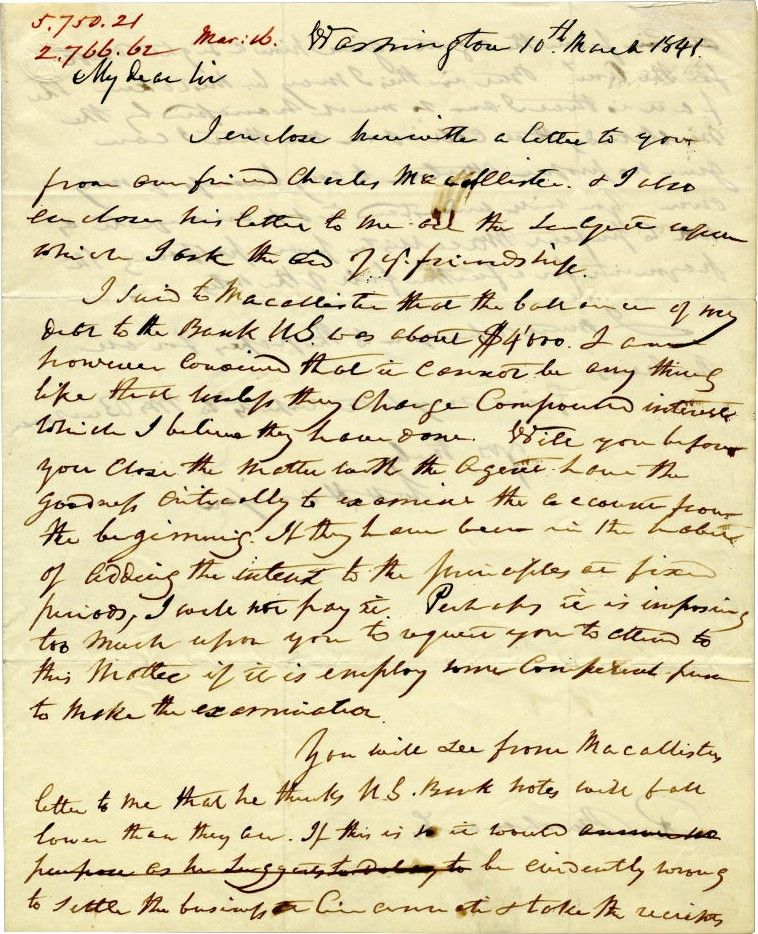 5.750.21
2.766.62 Mar: 16. Washington 10th March 1841.
My dear Sir
I enclose herewith a letter to you
from our friend Charles Macallister. & I also
enclose his letter to me on the subject upon
which I ask the aid of yr. friendship.
I said to Macallister that the ballance of my
debt to the Bank U.S. was about $4'000. I am
however convinced that it cannot be any thing
like that unless they charge Compound interest
which I believe they have done. Will you before
you close the matter with the Agent have the
goodness critically to examine the account from
the beginning. If they have been in the habit
of adding the interest to the principles at fixed
periods, I will not pay it. Perhaps it is imposing
too much upon you to request you to attend to
this Matter if it is employ some Competent person
to make the examination.
You will see from Macallisters
letter to me that he thinks U.S. Bank notes will fall
lower than they are. If this is so it would answer no
purpose as he suggests to delay to be evidently wrong
to settle the business at Cincinnati & take the receipts